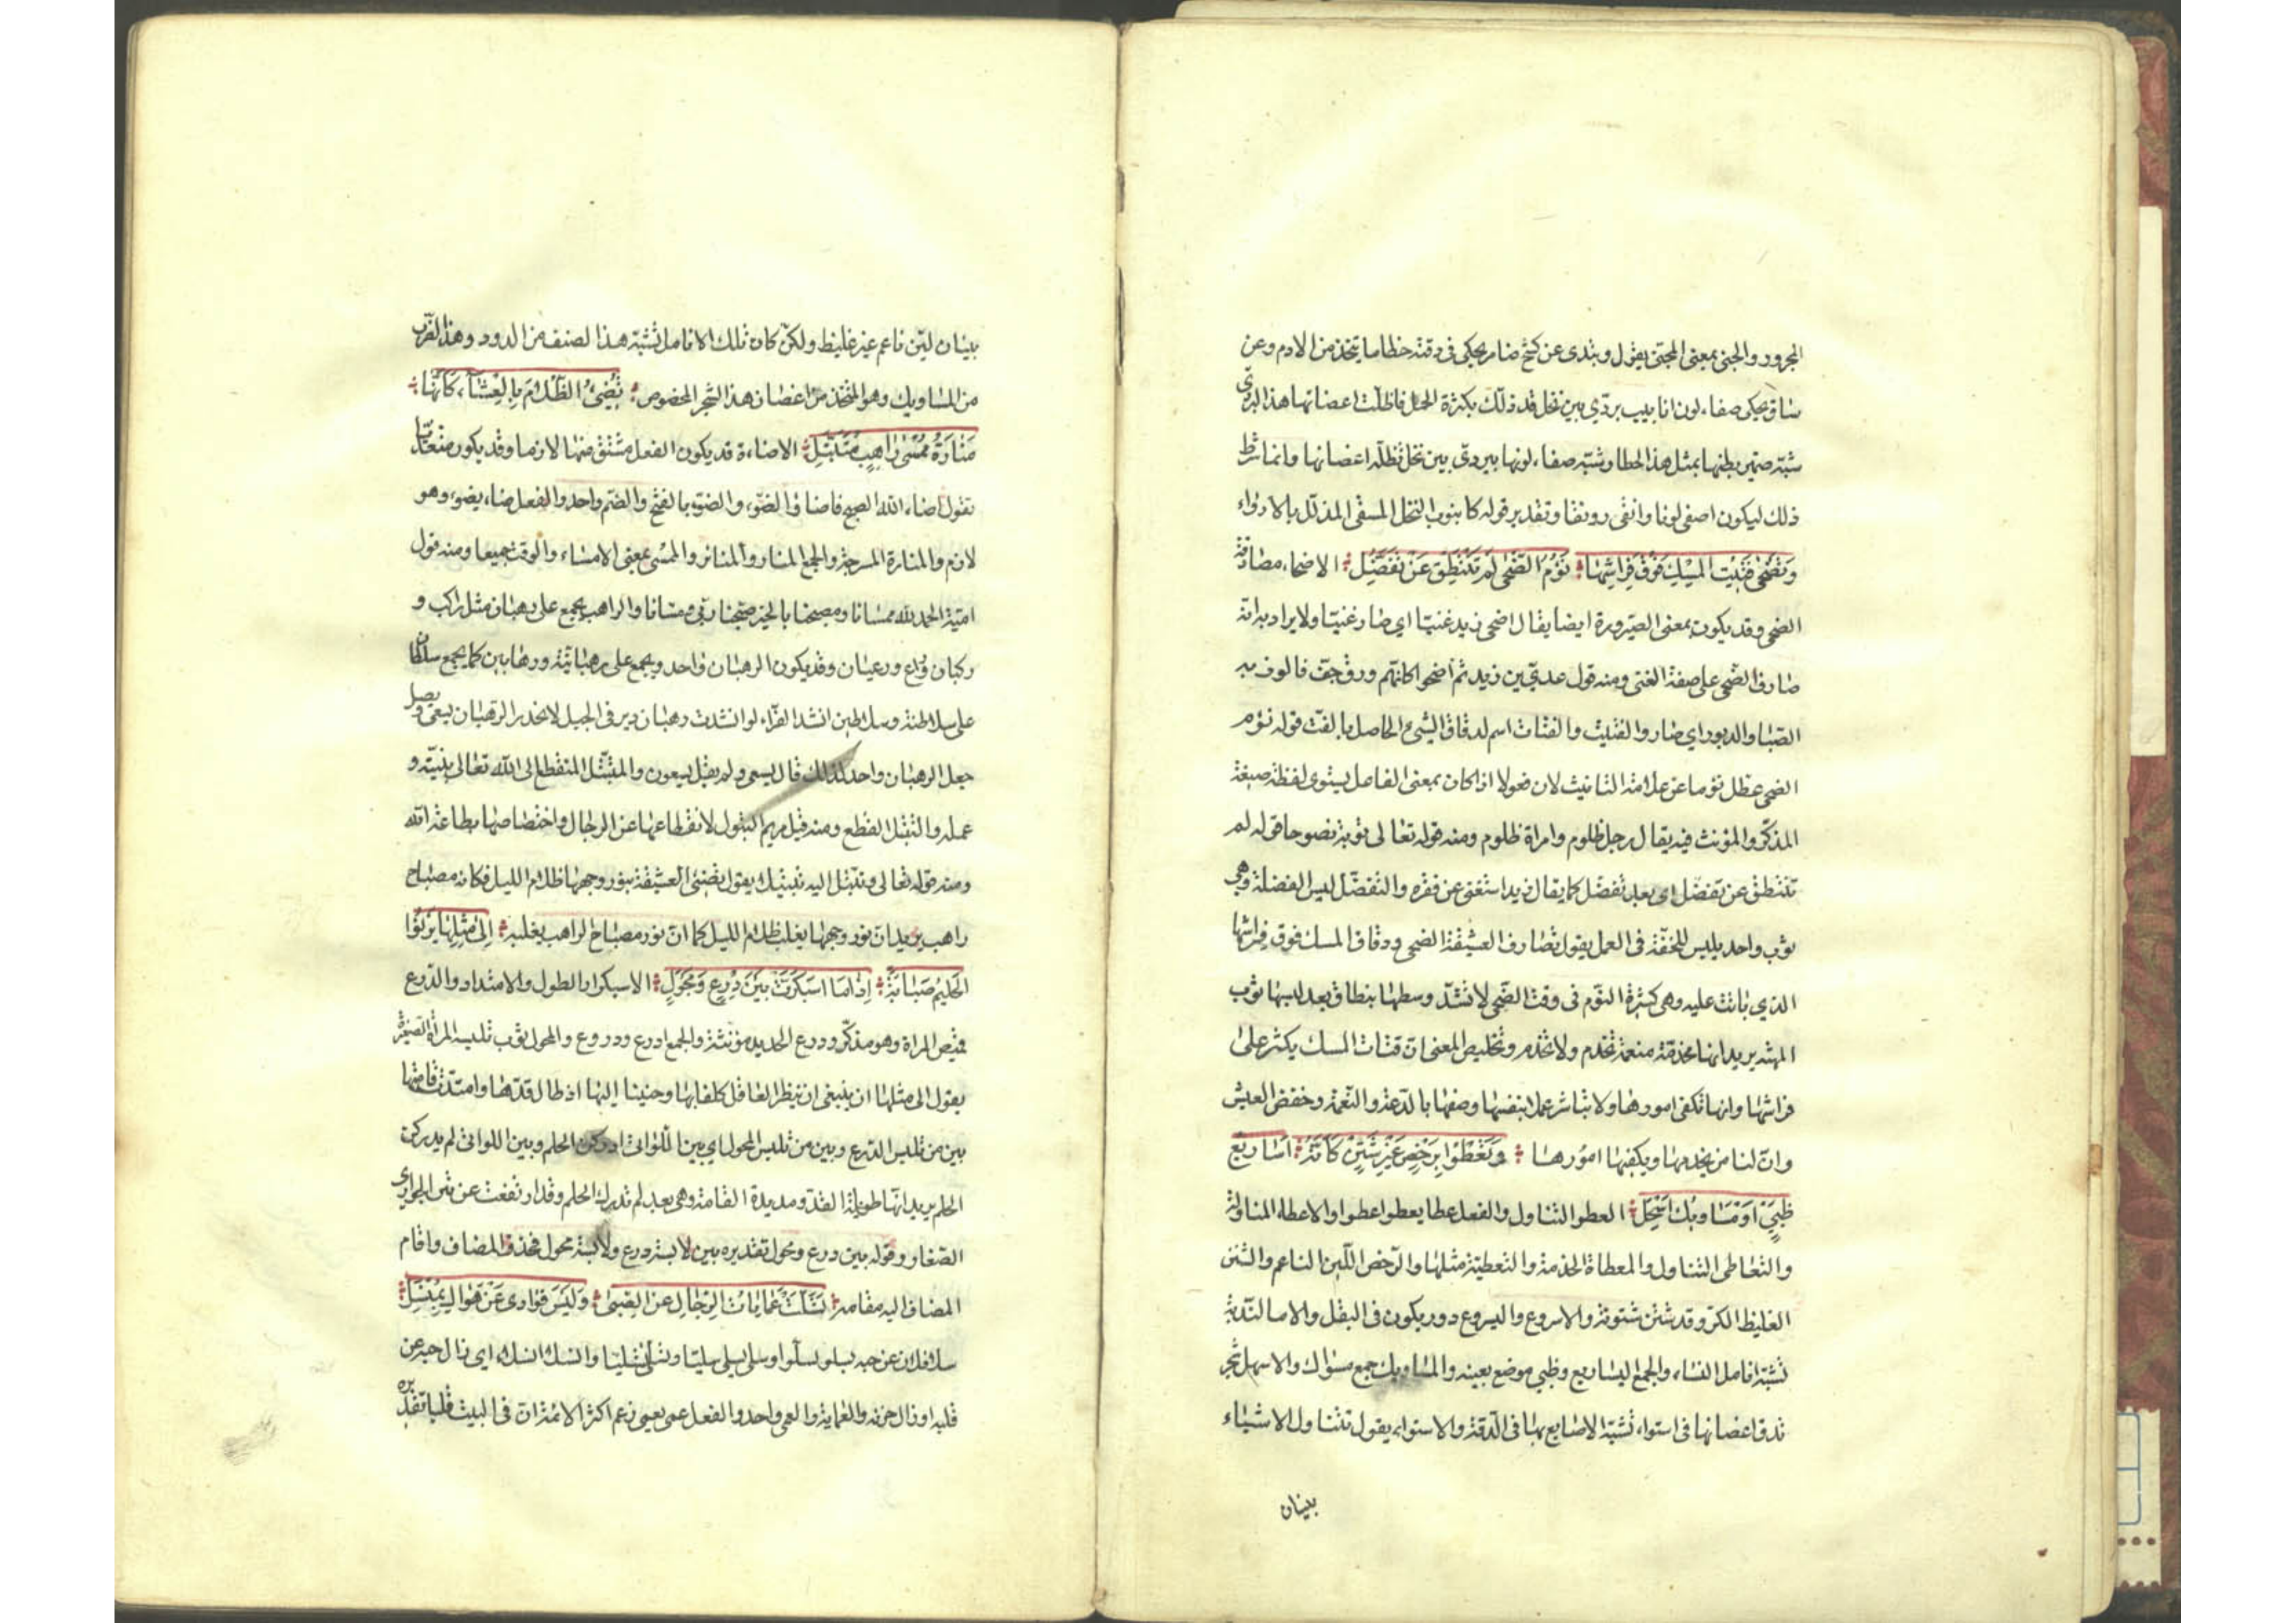 المجرور والجنى بمعنى المجتنى يقول وتبدى عن كشح ضامر يحكى فى دقته خطاما يتخذ من الادم وعن
ساق يحكى صفاء لون انابيب بردّي بين نخل قد ذلّلت بكثرة الحمل فاظلّت اغصانها هذا البردّي
شبّه ضمير بطنها بمثل هذا الخطام وشبّه صفاء لونها ببردىّ بين نخل تظلّه اغصانها وانما شرط
ذلك ليكون اصفى لونا وانقى رونقا وتقدير قوله كانبوب النخل المسقى المذلّل بالارواء
وَتضْحى فَتِيت المِسْكِ فَوْقَ فِرَاشِهَا نَؤُمُ الضّحى لم تَنْتَطِق عَنْ تَفَضُّلِ الاضحاء مصادفة
الضحى وقد يكون بمعنى الصيرورة ايضا يقال اضحى زيد غنيّا اي صار غنيّا ولا يراد به انه
صادف الضحى على صفة الغنى ومنه قول عدىّ بن زيد ثم أضحوا كانّهم ورق جفّ فالوت به
الصّبا والدبور اي صاروا والفتيت والفتات اسم لدقاق الشيء الحاصل بالفتّ قوله نؤم
الضحى عطل نؤما عن علامة التانيث لان فعولا اذا كان بمعنى الفاعل يستوى لفظة صيغة
المذكّر والمؤنث فيه يقال رجل ظلوم وامراة ظلوم ومنه قوله تعالى توبة نصوحا قوله لم
تنتطق عن تفضل اى بعد تفضّل كما يقال زيد استغنى عن فقره والتفضّل لبس الفضلة وهي
ثوب واحد يلبس للخفّة فى العمل يقول تصادف العشيقة الضحى ودقاق المسك فوق فراشها
الذي باتت عليه وهى كثيرة النوم فى وقت الضّحى لا تشدّ وسطها بنطاق بعد لبسها ثوب
المهنه يريد انها مخدمّة منعمة تخدم ولا تخدم وتخليص المعنى انّ فتات المسك يكثر على
فراشها وانها تكفى امورها ولا تباشر عملا بنفسها وصفها بالدّعة والنّعمة وخفض العيش
وانّ لنا من يخدمها ويكفيها امورها وَتَعْطُوا بِرَخْصٍ غَيْرَ شَثْنٍ كَاَنّهُ أَسَاريع
ظَبِيٍ اَوْ مَسَاويكُ اسْحِلِ العطو التناول والفعل عطا يعطو اعطوا والاعطاء المناولة
والتعاطى التناول والمعطاة الخدمة والتعطية مثلها والرّخص اللّين الناعم والشثن
الغليظ الكزّ وقد شثن شثونة والاسروع واليسروع دود يكون فى البقل والاماكن النّدية
تشبّه انامل النساء والجمع اليساريع وظبي موضع بعينه والمساويك جمع مسواك والاسحل شجر
تدق اغصانها فى استواء تشبّه الاصابع بها فى الدّقة والاستواء يقول تتناول الاشياء
بينان
بينان ليّن ناعم غير غليظ ولكنّ كان تلك الانامل تشبّه هذا لصنف من الدود وهذا لضّرب
من المساويك وهو المتّخذ من اغصان هذا الشجر المخصوص تُضِيُ الظّلَامَ بِالْعِشَآءِ كَاَنّهَا
مَنَارَةُ مُمْسَى رَاهِبٍ مُتَبَتّلِ الاضاءة قد يكون الفعل مشتق منها لازما وقد يكون متعدّيا
تقول اضاء الله الصبح فاضاء والضوّء والضوّء بالفتح والضم واحد والفعل ضاء يضوء وهو
لازم والمنارة المسرجة والجمع المناور والمنائر والممسى بمعنى الامساء والوقت جميعا ومنه قول
اميّة الحمد لله ممسانا ومصبحنا بالخير صبّحنا ربّى ومسّانا والراهب يجمع على رهبان مثل راكب و
ركبان وراع ورعيان وقد يكون الرهبان واحد ويجمع على رهبانيّة ورهابين كما يجمع سلطان
على سلاطنة وسلاطين انشد الفرّاء لو انشدت رهبان دير فى الجبل لانحدر الرّهبان يسعى ويصل
جعل الرهبان واحد لذلك قال يسعى ولم يقل يسعون والمتبتّل المنقطع الى الله تعالى بنيّته و
عمله والتبتّل القطع ومنه قيل مريم البتول لانقطاعها عن الرجال واختصاصها بطاعة الله
ومنه قوله تعالى وتبتّل اليه تبتيلا يقول تضئى العشيقة بنور وجهها ظلام الليل فكانه مصباح
راهب يريد ان نور وجهها يغلب ظلام الليل كما انّ نور مصباح الراهب يغلبه إِلَى مِثْلِهَا يَرْنُوْا
الْحَلِيمُ صَبَابَةً إِذَا مَا اسْبَكَرّتْ بَيْنَ دِرْعٍ وَمِجْوَلِ الاسبكرار الطول والامتداد والدّرع
قميص المراة وهو مذكّر ودرع الحديد مؤنثة والجمع ادرع ودروع والمجول ثوب تلبسه المراة الصّغيرة
يقول الى مثلها ان ينبغى ان ينظر العاقل كلفا بها وحنينا اليها اذ طال قدّها وامتدّت قامتها
بين من تلبس الدّرع وبين من تلبس المجول اي بين اللّواتى ادركن الحلم وبين اللواتى لم يدركن
الحلم يريد انّها طويلة القدّ ومديدة القامة وهى بعد لم تدرك الحلم وقد ارتفعت عن سن الجوارى
الصّغار وقوله بين درع ومجول تقديره بين لابسة درع ولابسة مجول فحذف المضاف واقام
المضاف اليه مقامه تَسَلّتْ عَمَايَاتُ الرِّجَالِ عن الصِّبَى وَلَيْسَ فؤادى عَنْ هَوَاكِ بِمُنْسَلِ
سلا فلان عن حبه يسلو سلّوا وسلى يسلى سليّا وتسلّى تسليّا وانسلى انسلاء اى زال حبه عن
قلبه او زال حزنه والعماية والعمى واحد والفعل عمى يعمى زعم اكثر الائمة انّ فى البيت قلبا تقديره